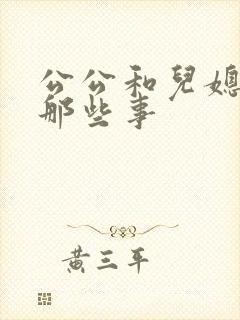 公公和兒媳
那些事
黃三平